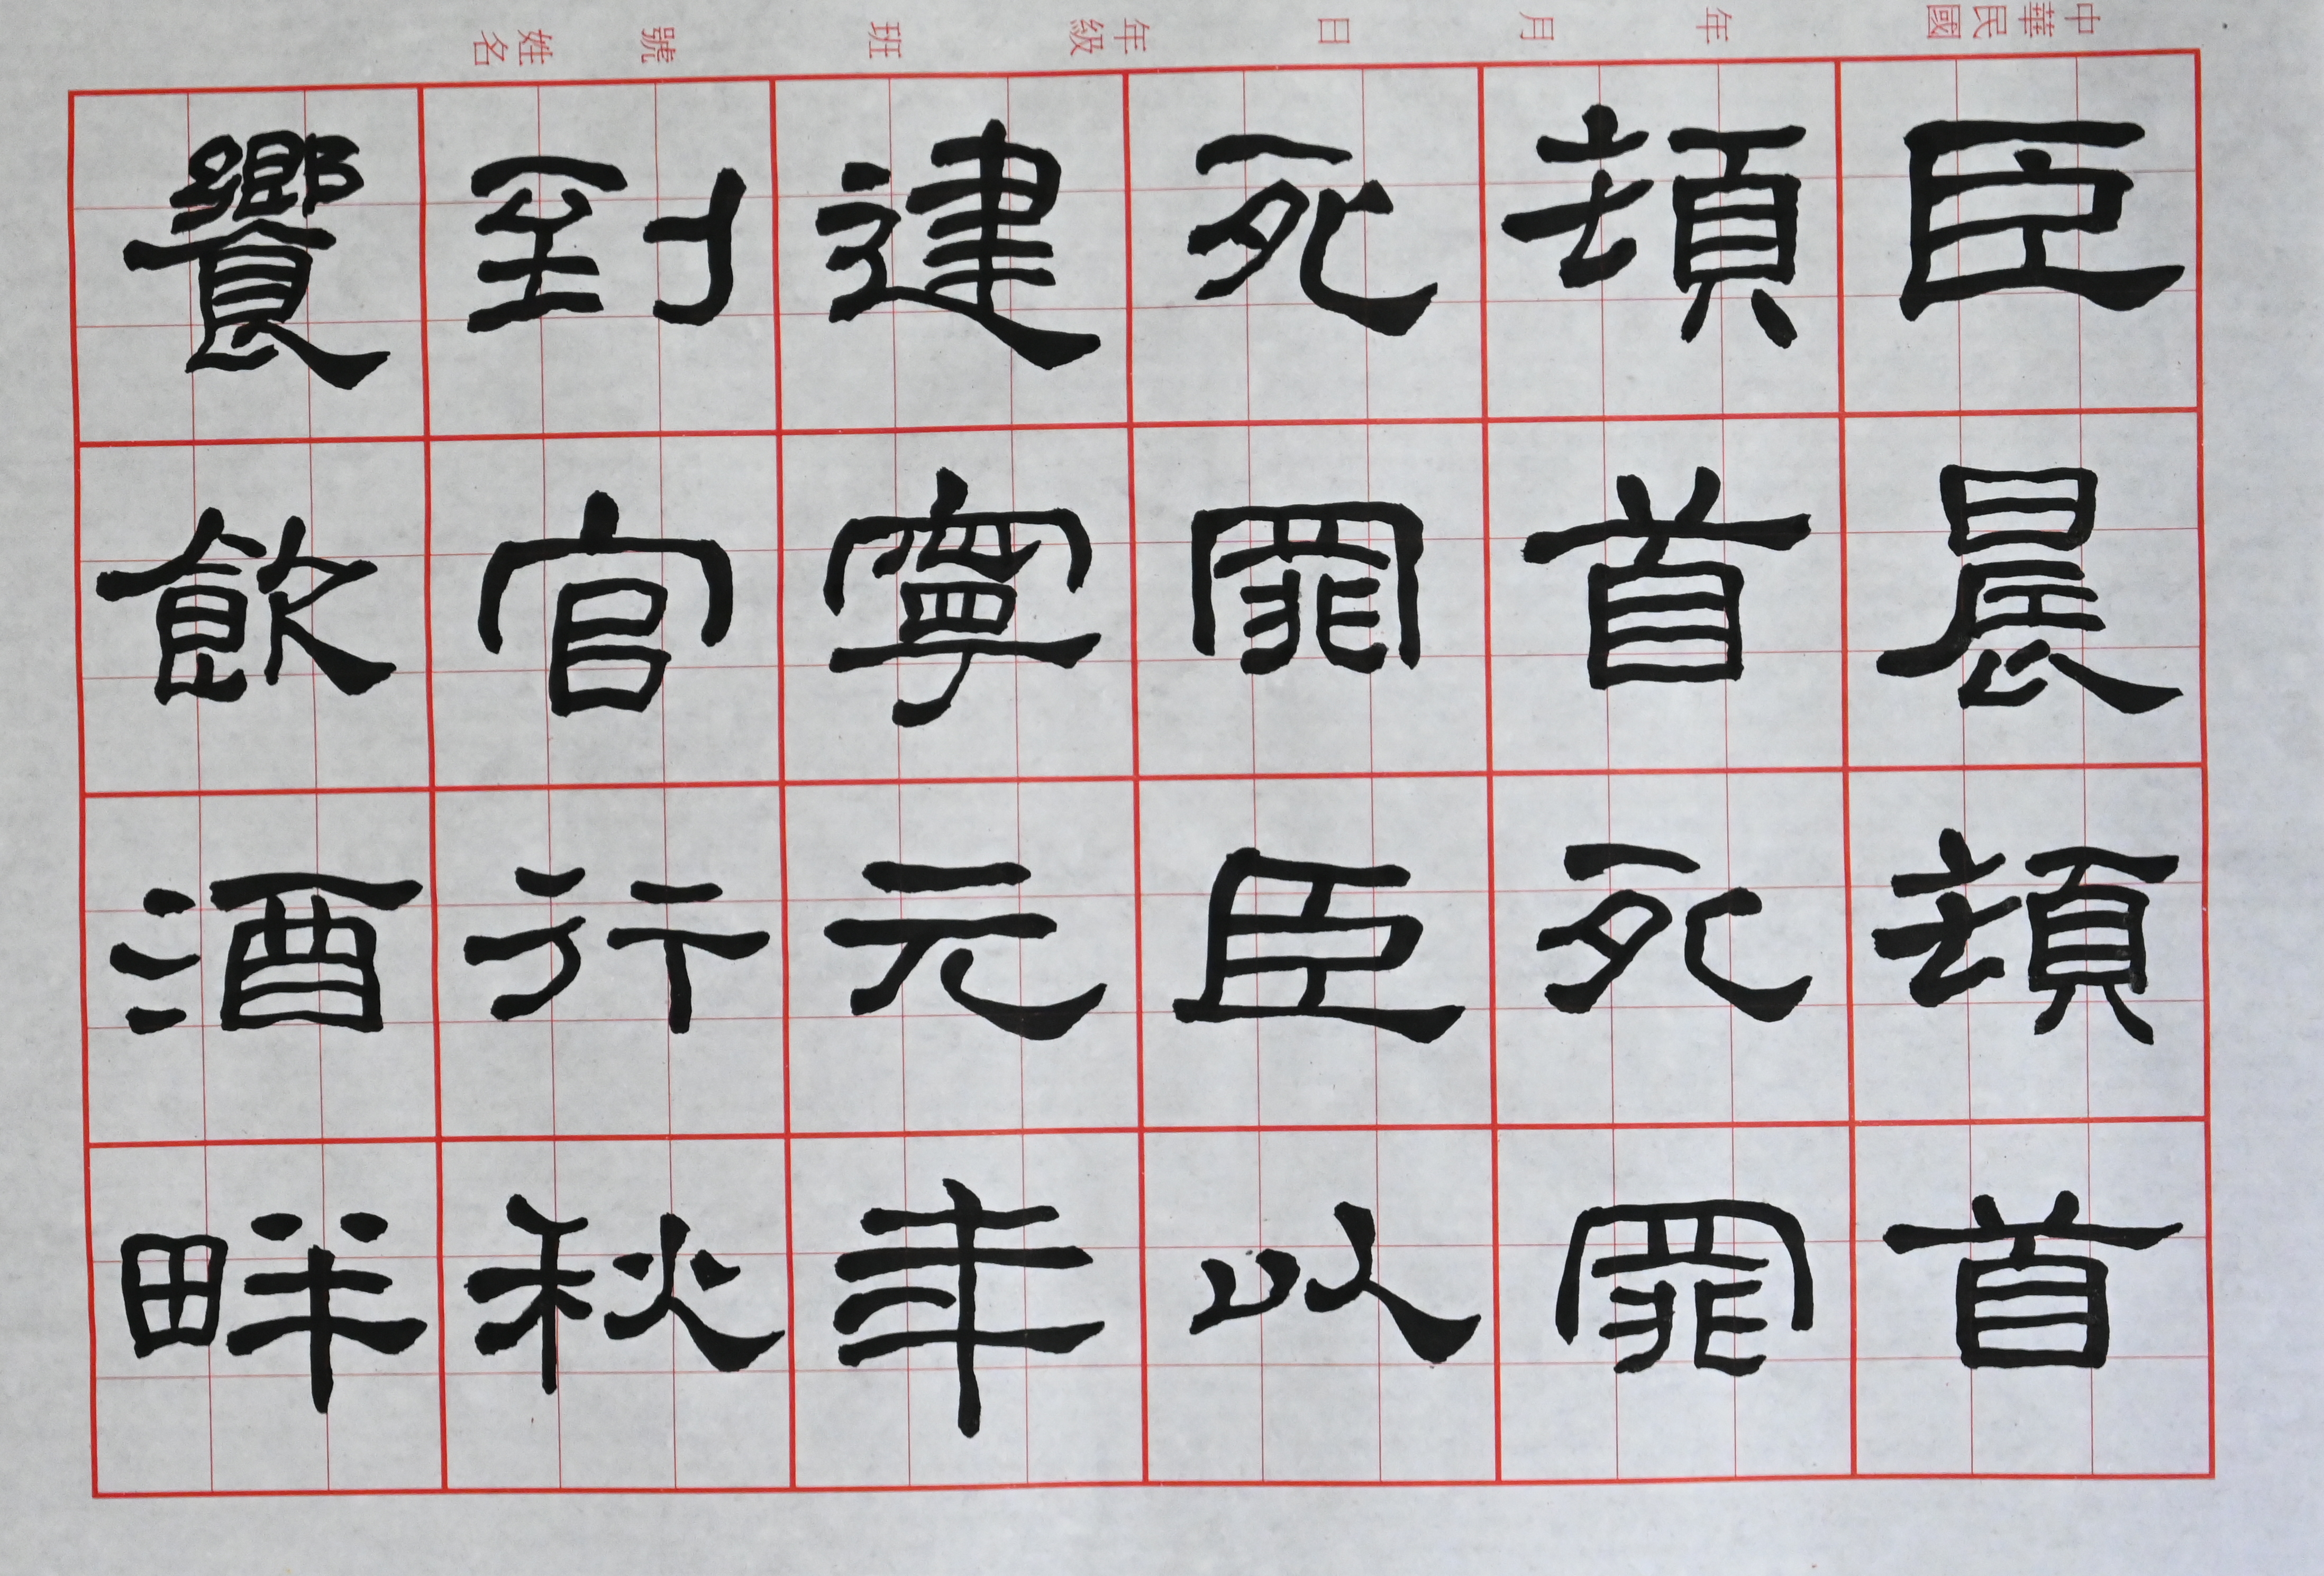 中華民國　年　月　日　年級　班　號　姓名
臣晨頓首
頓首死罪
死罪臣以
建寧元年
到官行秋
饗飲酒畔